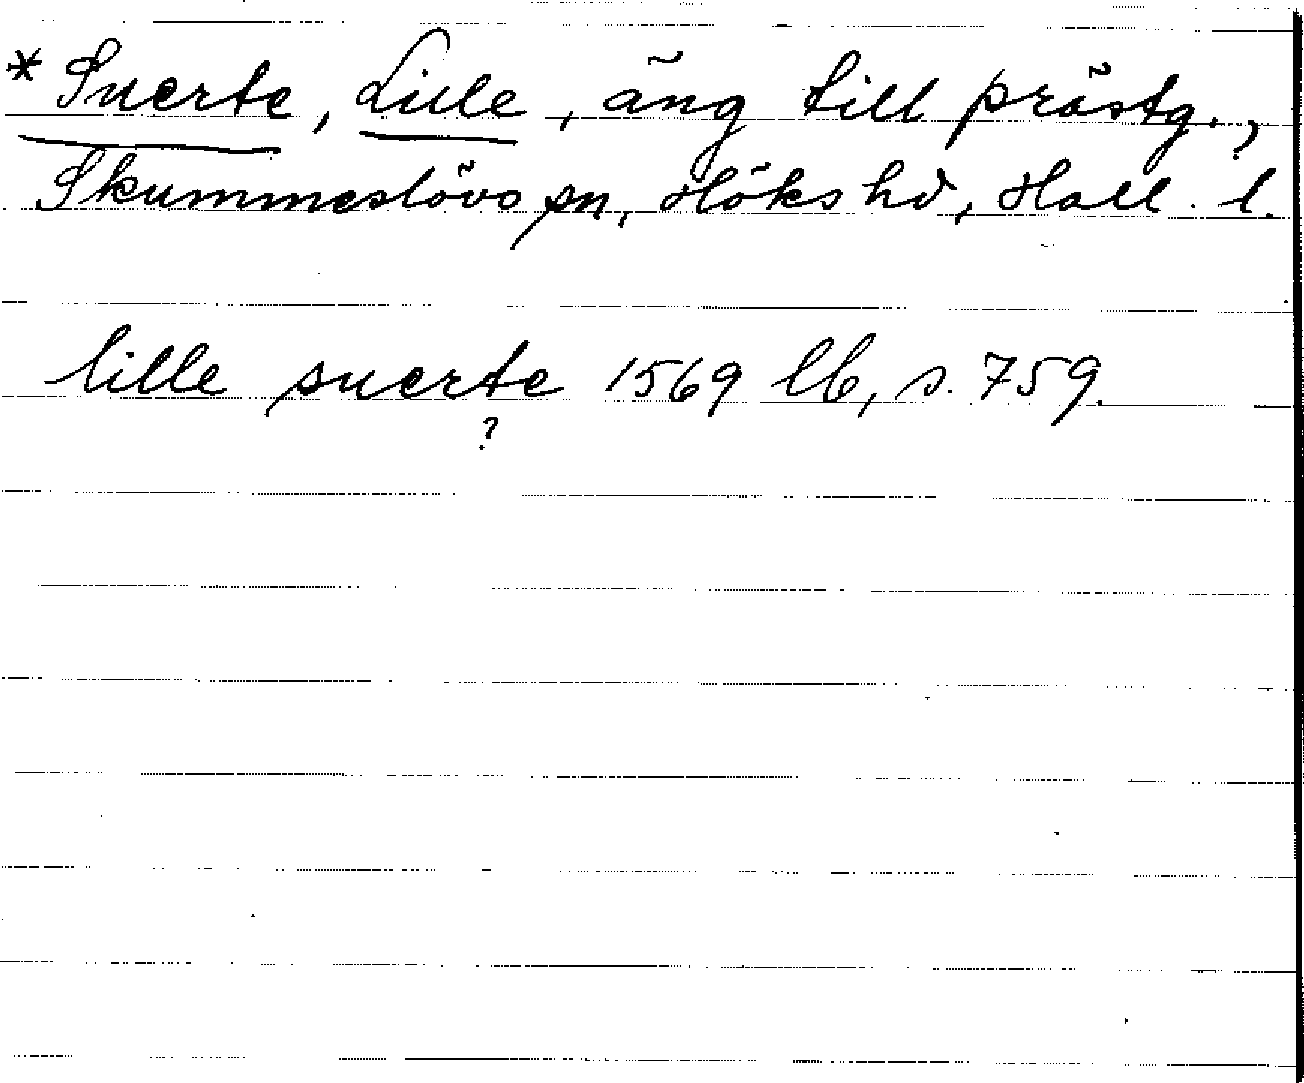 *Suerte, Lille, äng till prästg.,
Skummeslövs sn, Höks hd, Hall. l.
lille suerte 1569 lb, s. 759.
?